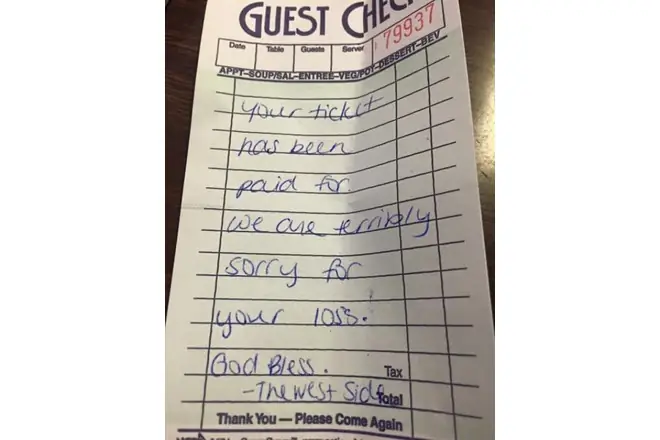 GUEST CHEC
Date Table Guests Server 79937
APPT–SOUP/SAL–ENTREE–VEG/POT–DESSERT–BEV
your ticket
has been
paid for
we are terribly
sorry for
your loss.
God Bless. Tax
-The West Side Total
Thank You — Please Come Again